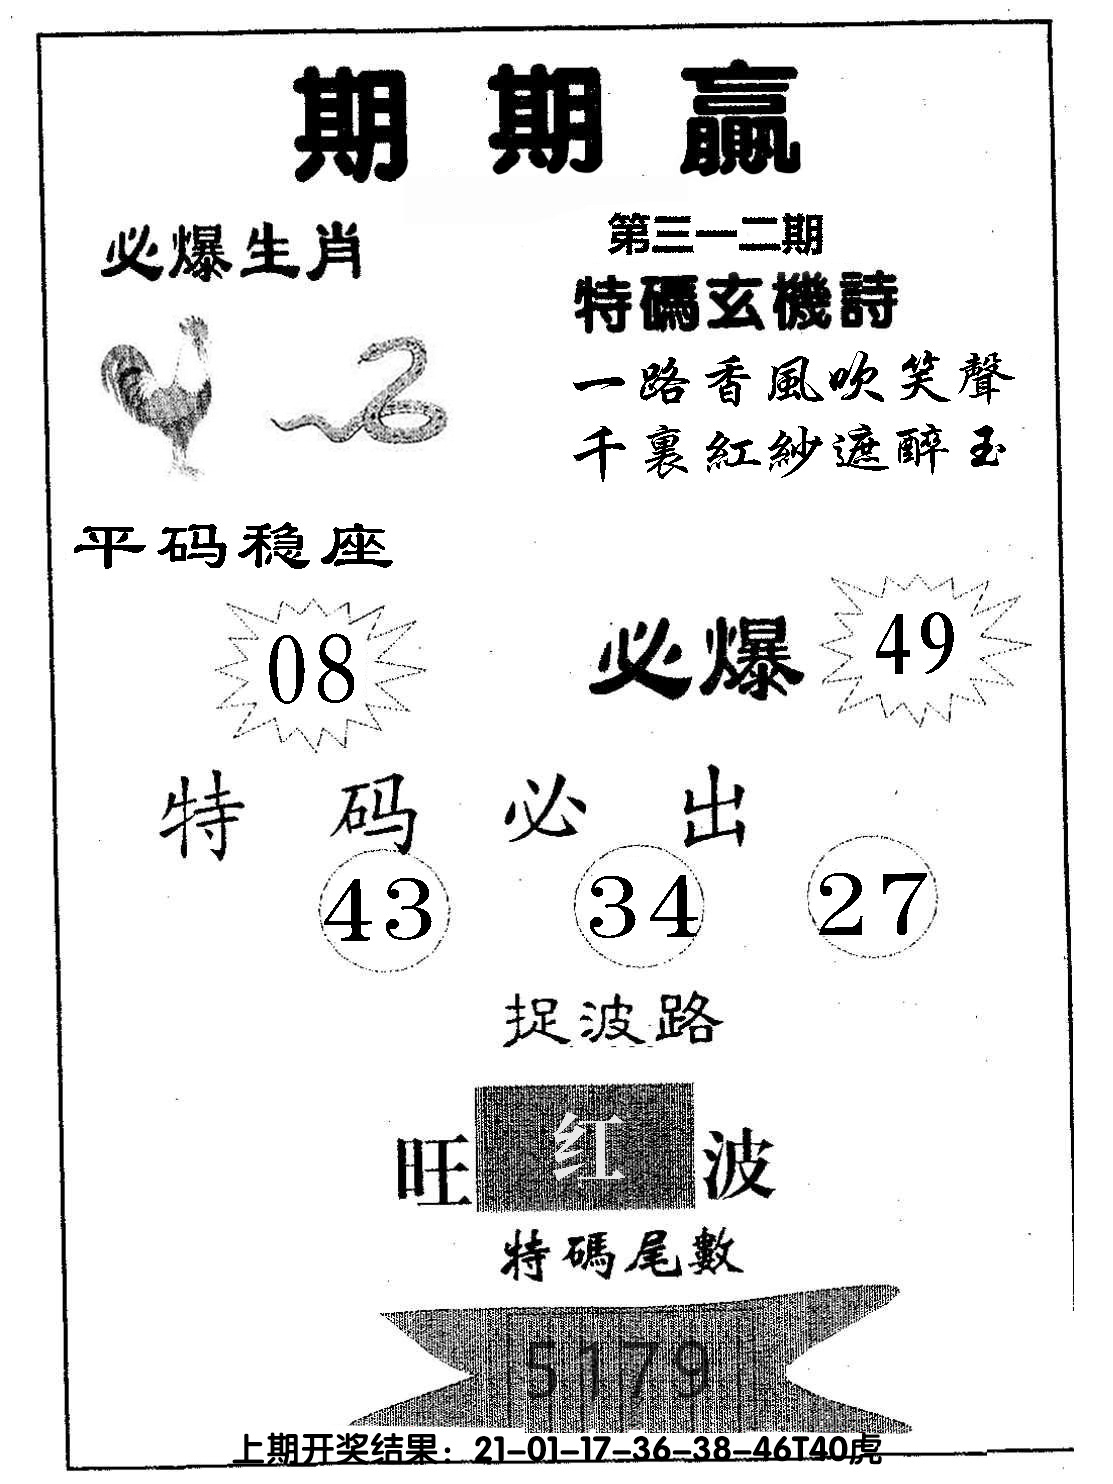 期期赢
必爆生肖
第三一二期
特碼玄機詩
一路香風吹笑聲
千裏紅紗遮醉玉
平码稳座
08
必爆
49
特码必出
43 34 27
捉波路
旺红波
特碼尾數
5179
上期开奖结果：21-01-17-36-38-46T40虎